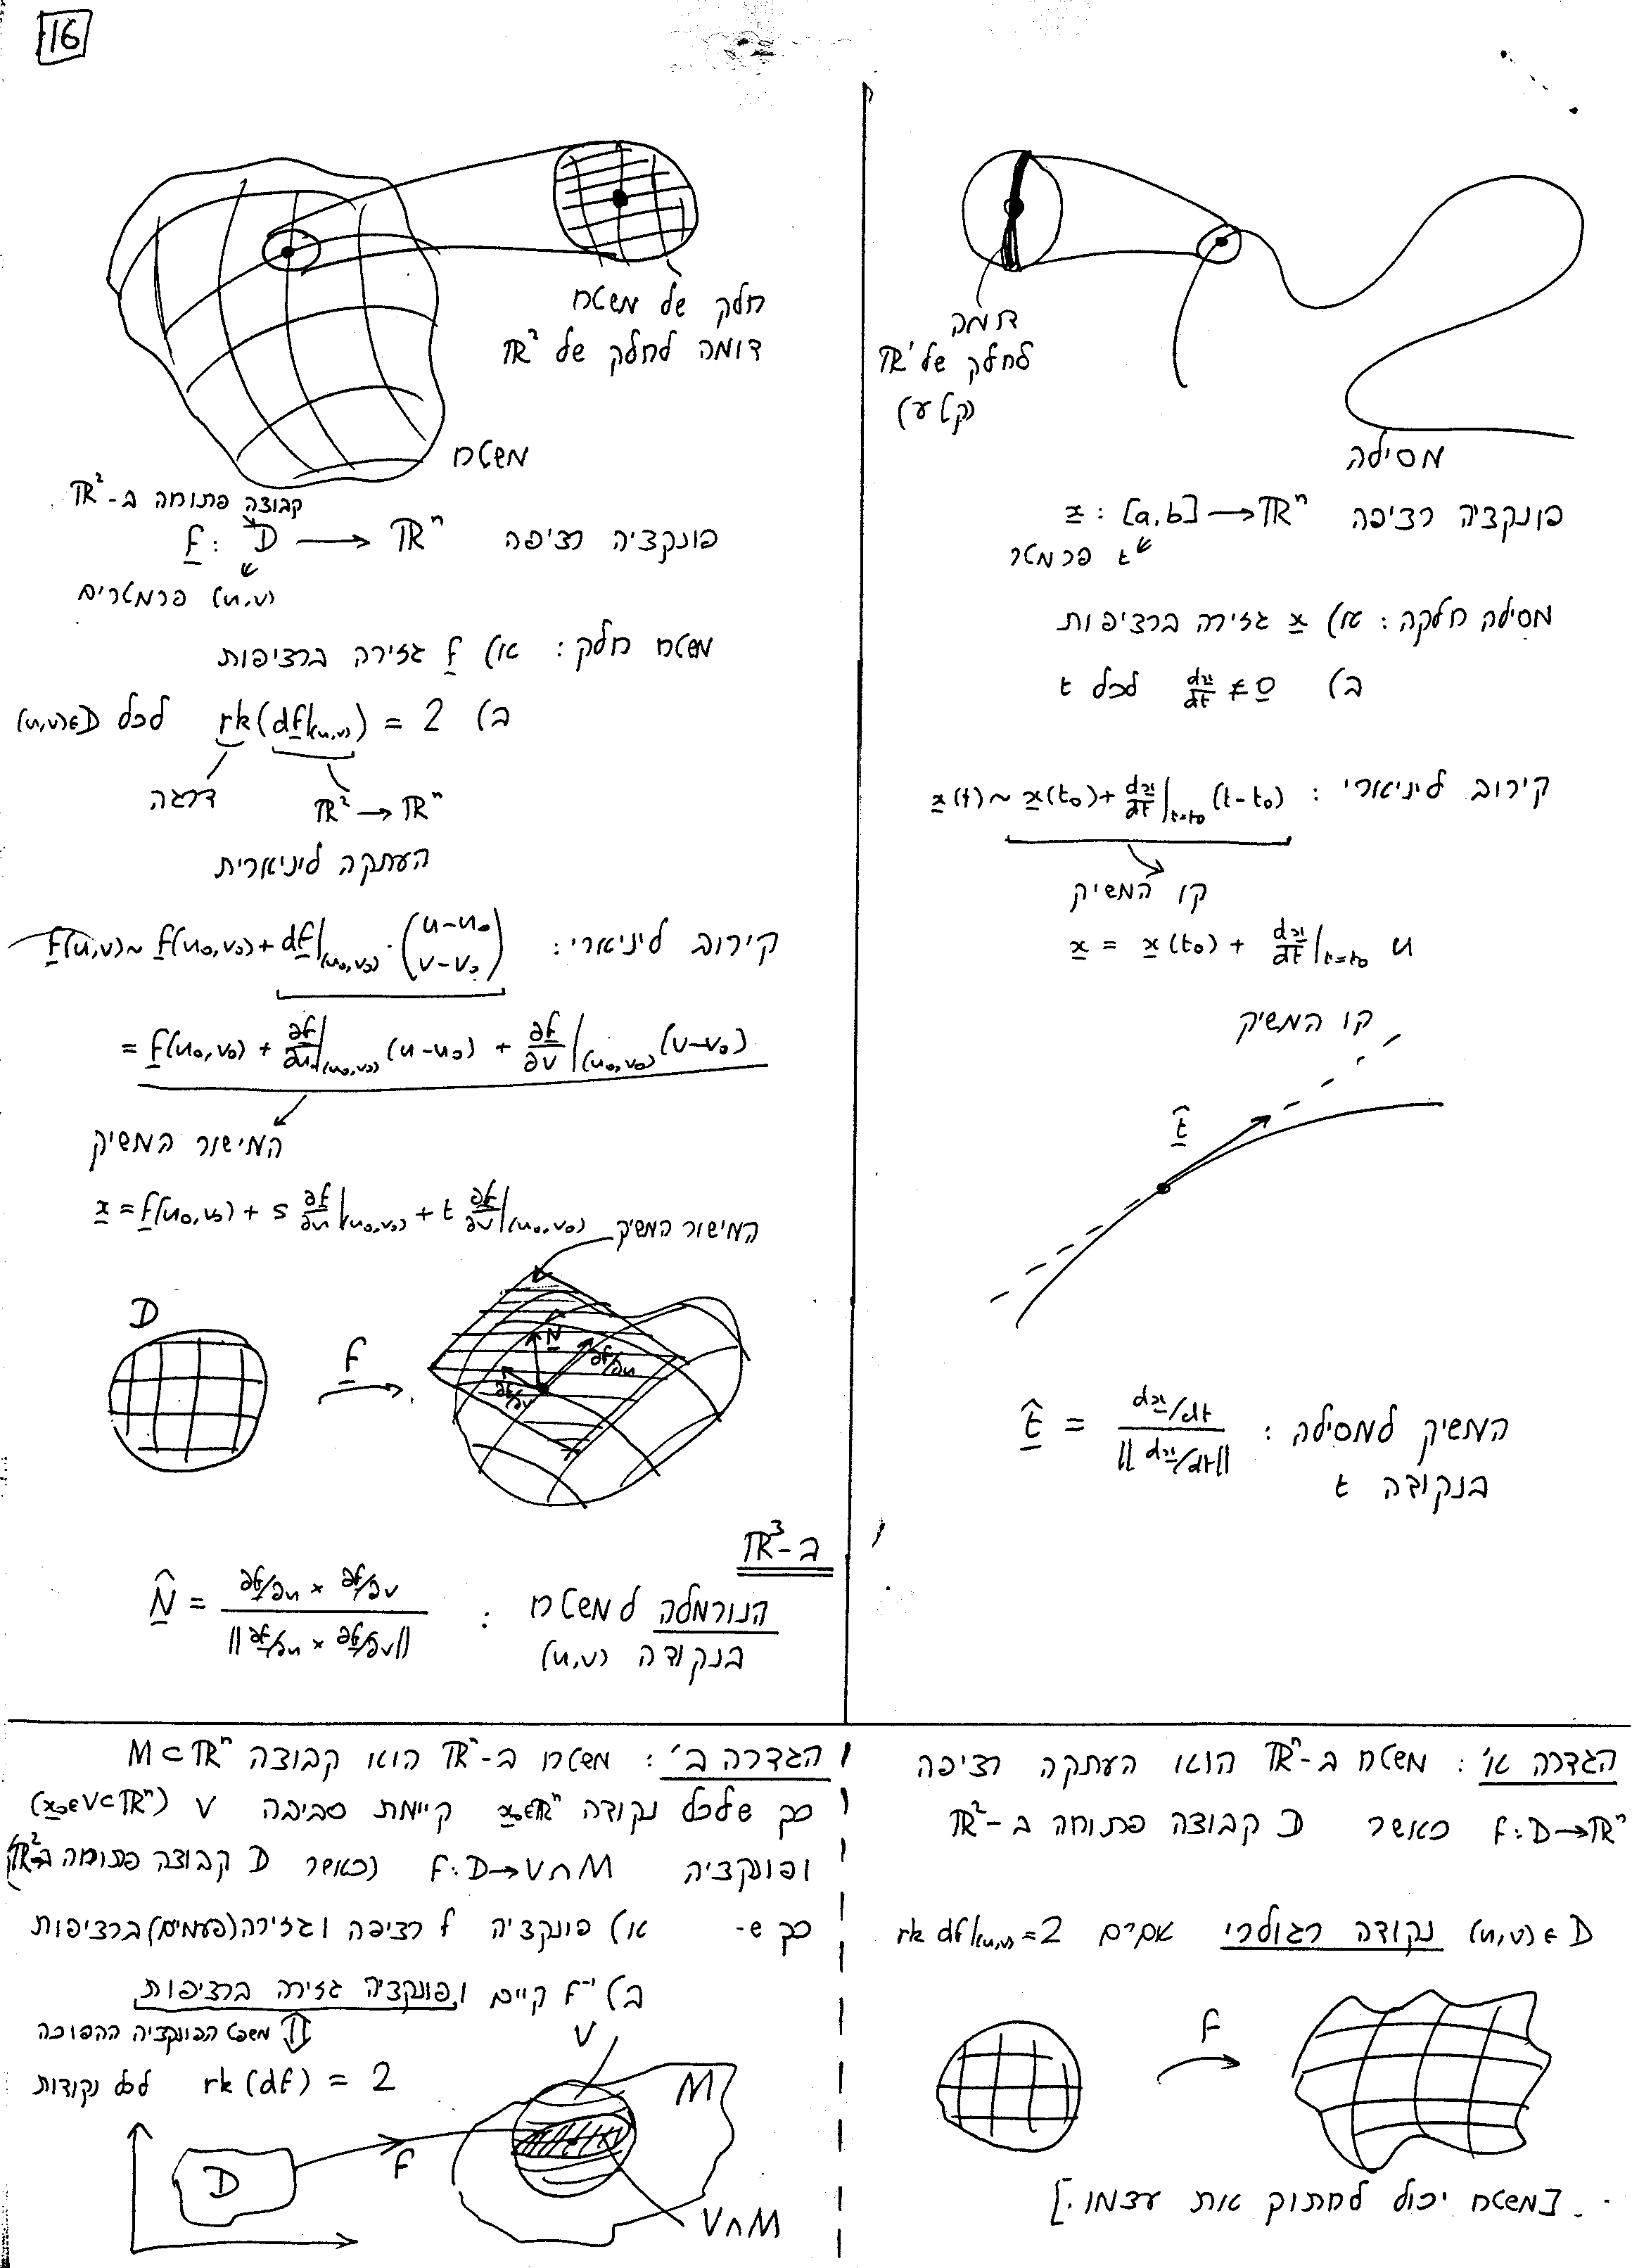 16
דומה
לחלק של ℝ¹
(קטע)
מסילה
x : [a,b] → ℝⁿ פונקציה רציפה
t פרמטר
מסילה חלקה: א) x גזירה ברציפות
ב) dx/dt ≠ 0 לכל t
קירוב ליניארי: x(t) ~ x(t₀) + dx/dt|t=t₀ (t-t₀)
קו המשיק
x = x(t₀) + dx/dt|t=t₀ u
קו המשיק
t̂
המשיק למסילה: t̂ = (dx/dt) / ||dx/dt||
בנקודה t
חלק של משטח
דומה לחלק של ℝ²
משטח
קבוצה פתוחה ב-ℝ²
f : D → ℝⁿ פונקציה רציפה
(u,v) פרמטרים
משטח חלק: א) f גזירה ברציפות
ב) rk(df|(u,v)) = 2 לכל (u,v)∈D
דרגה
ℝ² → ℝⁿ
העתקה ליניארית
קירוב ליניארי: f(u,v) ~ f(u₀,v₀) + df|(u₀,v₀) · (u-u₀ v-v₀)
= f(u₀,v₀) + ∂f/∂u|(u₀,v₀) (u-u₀) + ∂f/∂v|(u₀,v₀) (v-v₀)
המישור המשיק
x = f(u₀,v₀) + s ∂f/∂u|(u₀,v₀) + t ∂f/∂v|(u₀,v₀)
המישור המשיק
D
f
N
∂f/∂u
∂f/∂v
ב-ℝ³
הנורמלה למשטח: N̂ = (∂f/∂u × ∂f/∂v) / ||∂f/∂u × ∂f/∂v||
בנקודה (u,v)
הגדרה א': משטח ב-ℝⁿ הוא העתקה רציפה
f:D→ℝⁿ כאשר D קבוצה פתוחה ב-ℝ²
(u,v)∈D נקודה רגולרי אם"ם rk df|(u,v)=2
f
[משטח יכול לחתוך את עצמו.]
הגדרה ב': משטח ב-ℝⁿ הוא קבוצה M⊂ℝⁿ
כך שלכל נקודה x₀∈ℝⁿ קיימת סביבה V (x₀∈V⊂ℝⁿ)
ופונקציה f:D→V∩M (כאשר D קבוצה פתוחה ב-ℝ²)
כך ש- א) פונקציה f רציפה וגזירה (פעמיים) ברציפות
ב) f⁻¹ קיים ופונקציה גזירה ברציפות
⇕ משפט הפונקציה ההפוכה
rk(df) = 2 לכל נקודות
V
M
D
f
V∩M